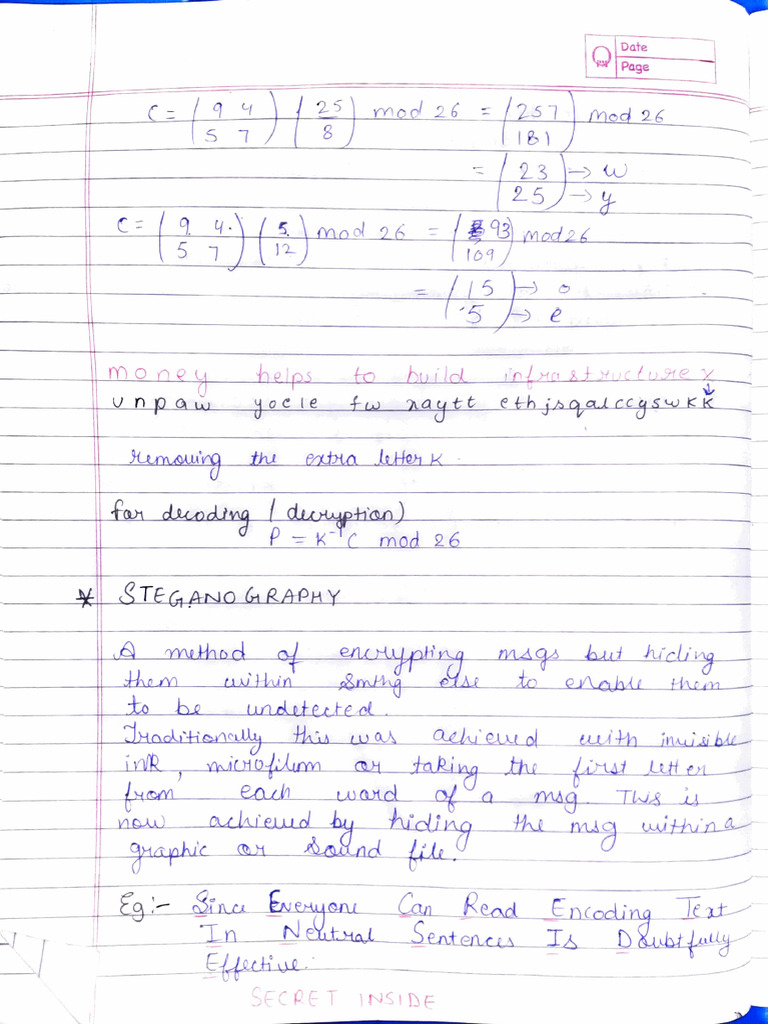 Date
Page
C = (9 4 5 7) (25 8) mod 26 = (257 181) mod 26
= (23 25) → w → y
C = (9 4 5 7) (5 12) mod 26 = (93 109) mod 26
= (15 5) → o → e
money helps to build infrastructure x
unpaw yocle fw xaytt ethjsqalccgswkk
removing the extra letter k
for decoding / decryption)
P = K⁻¹C mod 26
* STEGANOGRAPHY
A method of encrypting msgs but hiding
them within Smthg else to enable them
to be undetected.
Traditionally this was achieved with invisible
ink, microfilum or taking the first letter
from each word of a msg. This is
now achieved by hiding the msg within a
graphic or sound file.
Eg:- Since Everyone Can Read Encoding Text
In Neutral Sentences Is Doubtfully
Effective.
SECRET INSIDE